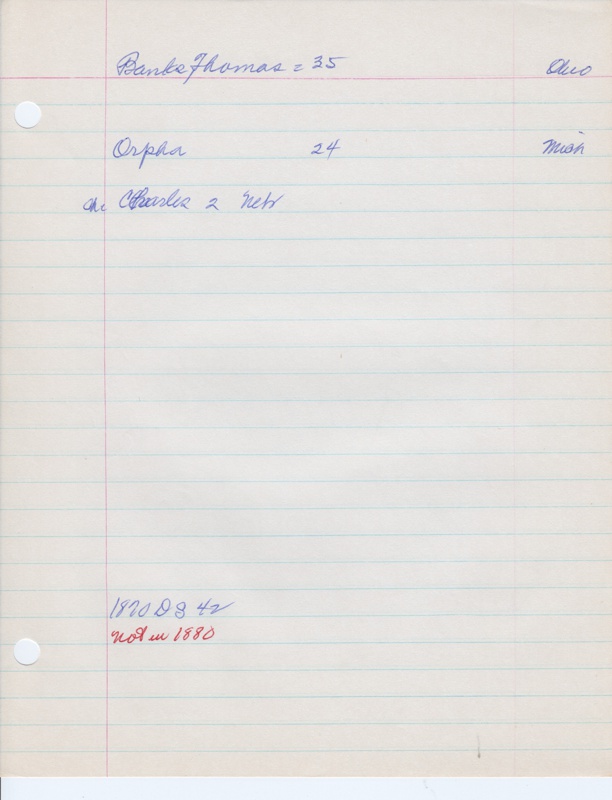 Banks Thomas = 35 Ohio
Orpha 24 Mich
ch Charles 2 Nebr
1870 D G 42
not in 1880